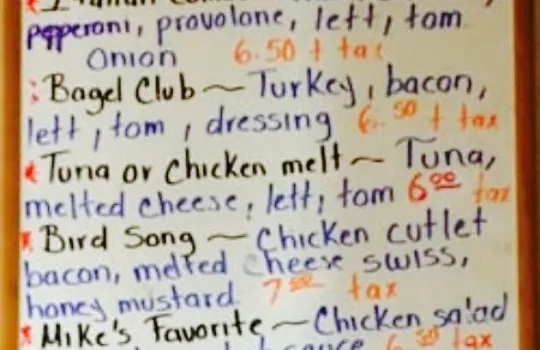 pepperoni, provolone, lett, tom
Onion 6.50 + tax
Bagel Club ~ Turkey, bacon,
lett, tom, dressing 6.50 + tax
Tuna or Chicken melt ~ Tuna,
melted cheese, lett, tom 6.00 tax
Bird Song ~ Chicken cutlet
bacon, melted cheese swiss,
honey mustard 7.00 tax
Mike's Favorite ~ Chicken salad
sauce 6.50 tax